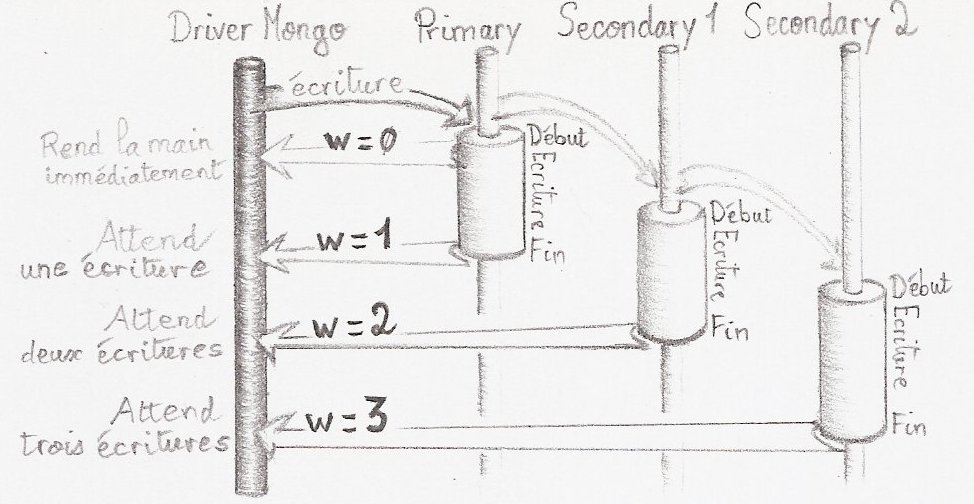 Driver Mongo Primary Secondary 1 Secondary 2
écriture
Rend la main
immédiatement
w=0
Début
Ecriture
Fin
Attend
une écriture
w=1
Début
Ecriture
Fin
Attend
deux écritures
w=2
Début
Ecriture
Fin
Attend
trois écritures
w=3